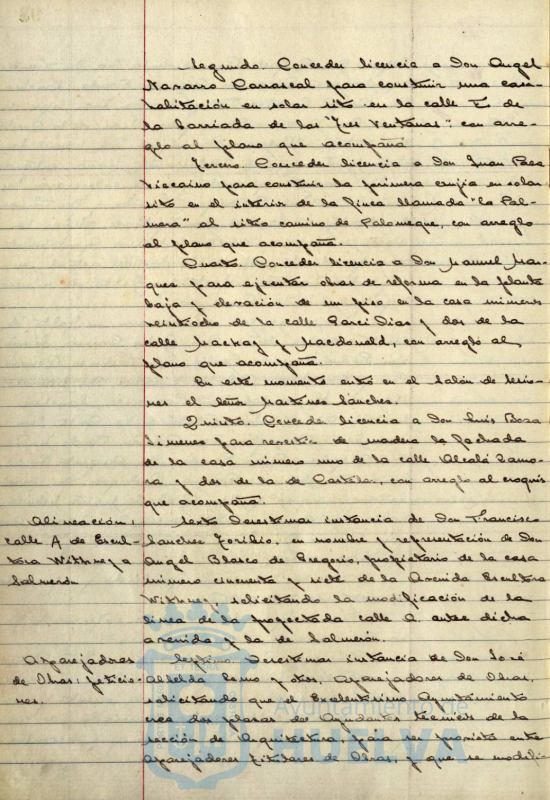 Segundo. Conceder licencia a Don Angel
Navarro Carrascal para construir una casa-
habitación en solar sito en la calle E de
la barriada de las "Tres Ventanas" con arre-
glo al plano que acompaña.
Tercero. Conceder licencia a Don Juan Baea
Viscaino para construir la primera crujia en solar
sito en el interior de la finca llamada "La Pal-
mera" al sitio camino de Palomeque, con arreglo
al plano que acompaña.
Cuarto. Conceder licencia a Don Manuel Mar-
ques para ejecutar obras de reforma en la planta
baja y elevación de un piso en la casa número
veintiocho de la calle Garci Dias y dos de la
calle Mackay y Macdonald, con arreglo al
plano que acompaña.
En este momento entró en el Salón de sesio-
nes el señor Martines Sanches.
Quinto. Conceder licencia a Don Luis Boza
Jimenes para revestir de madera la fachada
de la casa número uno de la calle Alcalá Zamo-
ra y dos de la de Castelar, con arreglo al croquis
que acompaña.
Alineación;
calle A de Escul-
tora Withney a
Salmerón
Sexto Desestimar instancia de Don Francisco
Sanchez Toribio, en nombre y representación de Don
Angel Blasco de Gregorio, propietario de la casa
número cincuenta y siete de la Avenida Escultora
Withney, solicitando la modificación de la
linea de la proyectada calle A. entre dicha
avenida y la de Salmerón.
Aparejadores
de Obras; peticio-
nes.
Septimo. Desestimar instancia de Don José
Albelda y otros, Aparejadores de Obras,
solicitando que el Excelentisimo Ayuntamiento
cree dos plazas de Ayudantes técnicos de la
sección de Arquitectura, para ser provistas entre
Aparejadores titulares de Obras, y que se modifi-
Ayuntamiento de
HUELVA